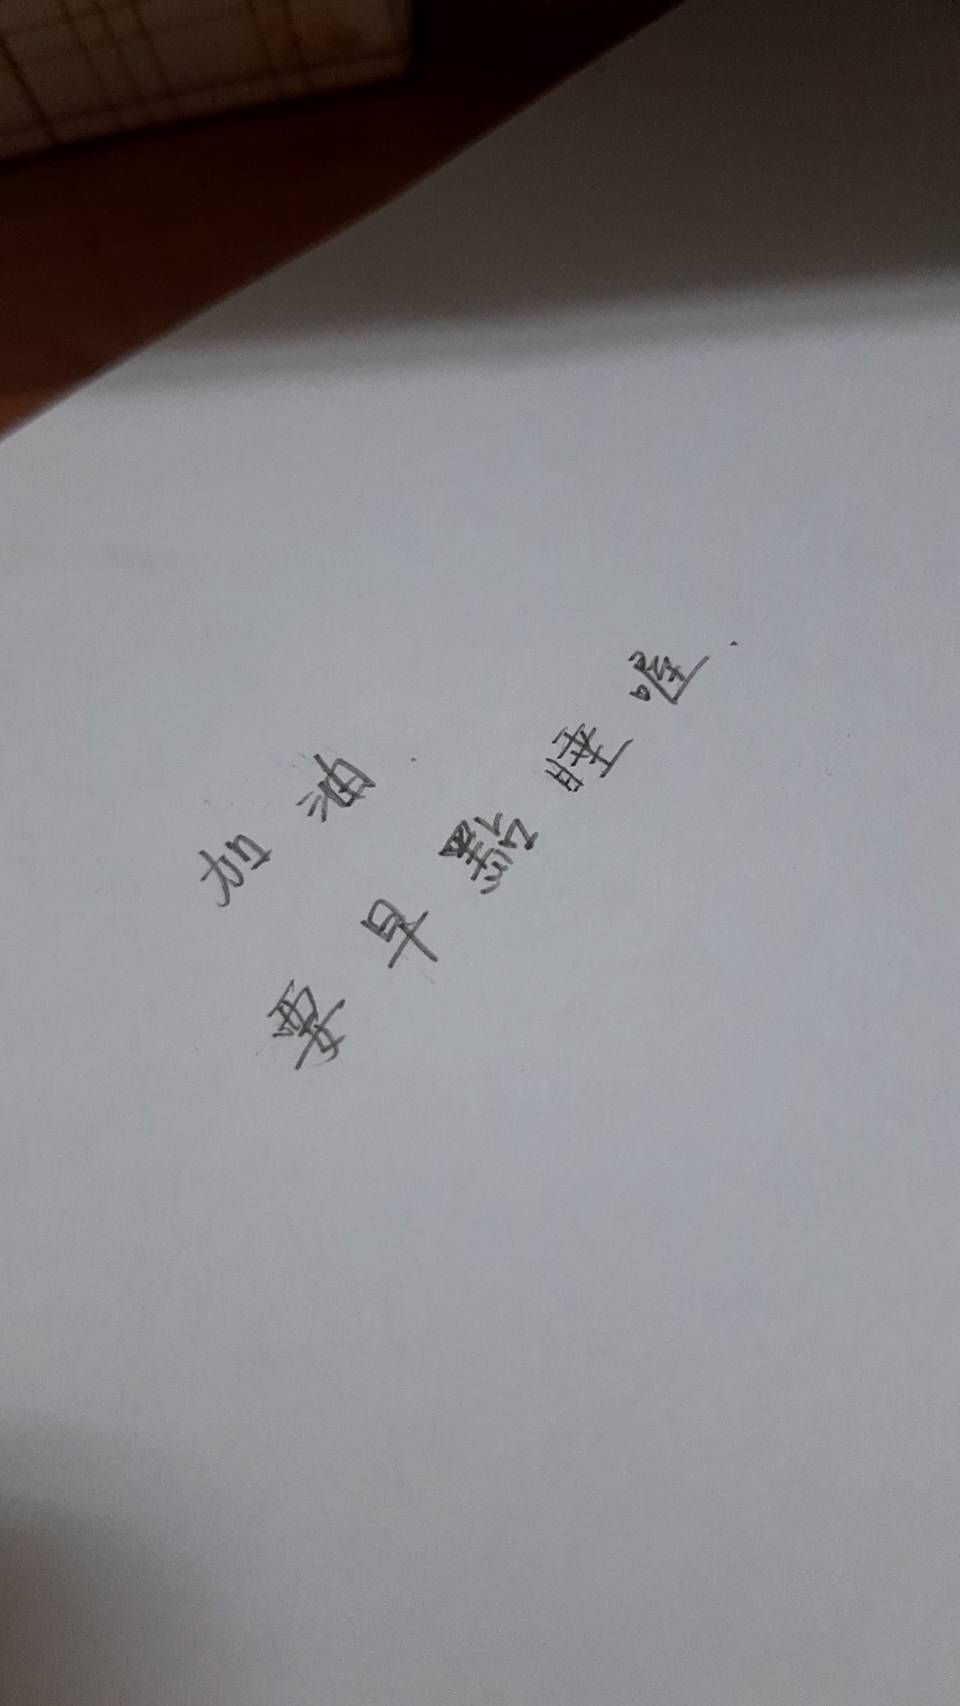 加油.
要早點睡喔.